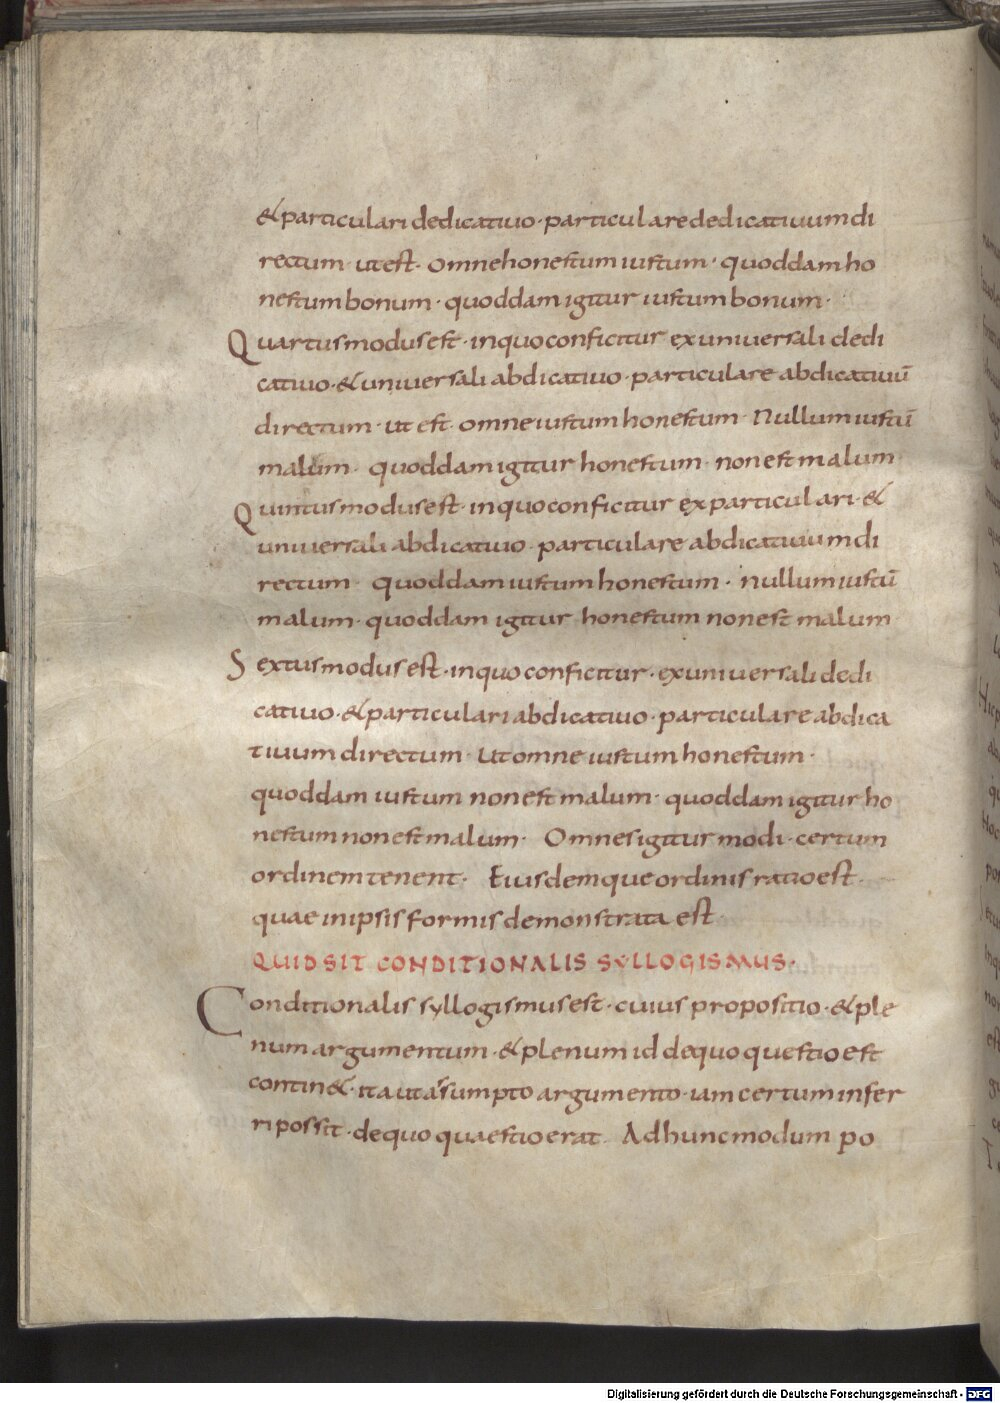 & particulari dedicatiuo · particulare dedicatiuum di
rectum · ut est · Omne honestum iustum · quoddam ho
nestum bonum · quoddam igitur iustum bonum ·
Quartus modus est · in quo conficitur ex uniuersali dedi
catiuo · & uniuersali abdicatiuo · particulare abdicatiuū
directum · ut est · omne iustum honestum · Nullum iustū
malum · quoddam igitur honestum · non est malum
Quintus modus est · in quo conficitur ex particulari · &
uniuersali abdicatiuo · particulare abdicatiuum di
rectum · quoddam iustum honestum · nullum iustū
malum · quoddam igitur honestum non est malum
Sextus modus est · in quo conficitur · ex uniuersali dedi
catiuo · & particulari abdicatiuo · particulare abdica
tiuum directum · Ut omne iustum honestum ·
quoddam iustum non est malum · quoddam igitur ho
nestum non est malum · Omnes igitur modi · certum
ordinem tenent · Eiusdemque ordinis ratio est ·
quae in ipsis formis demonstrata est ·
QUID SIT CONDITIONALIS SYLLOGISMUS ·
Conditionalis syllogismus est · cuius propositio · & ple
num argumentum · & plenum id de quo questio est
contin& · ita ut assumpto argumento · iam certum infer
ri possit · de quo quaestio erat · Ad hunc modum po
Digitalisierung gefördert durch die Deutsche Forschungsgemeinschaft - DFG